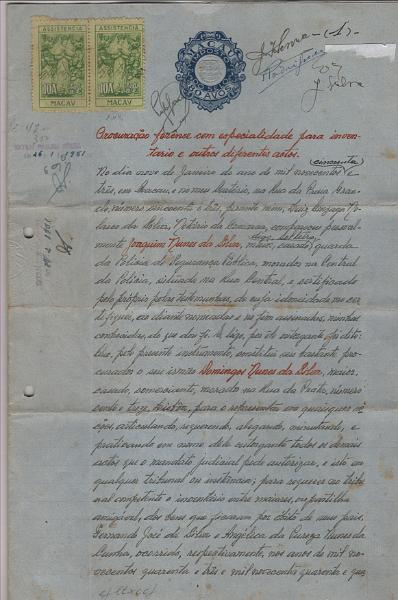 ASSISTENCIA ASSISTENCIA
10A 10A
MACAU MACAU
MACAU
AVOS
J. Silva
Procuração forense com especialidade para inven-
tario e outros diferentes actos.
(cincoenta)
No dia nove de Janeiro de ano de mil novecentos e
três, em Macau, e no meu Cartório, na Rua da Praia Gran-
de, número cincoenta e três, perante mim,
Notário da Comarca, compareceu pessoal-
digo, solteiro,
mente Joaquim Nunes da Silva, maior, casado, guarda
da Policia de Segurança Publica, morador na Central
da Policia, situada na Rua Central, e certificado
pelo próprio pelas testemunhas, de cuja idoneidade me cer-
tifiquei, ao diante nomeadas e no fim assinadas, minhas
conhecidas, do que dou fé. E logo, por ele outorgante foi dito:
Que, pelo presente instrumento, constitue seu bastante pro-
curador o seu irmão Domingos Nunes da Silva, maior,
casado, comerciante, morador na Rua da Prata, número
cento e treze, Lisboa, para o representar em quaisquer ac-
ções, articulando, requerendo, alegando, minutando, e
praticando em nome dele outorgante todos os demais
actos que o mandato judicial pode autorizar, e isto em
qualquer tribunal ou instancia; para requerer ao tribu-
nal competente o inventário entre maiores, ou partilha
amigável, dos bens que ficaram por óbito de seus pais,
Fernando José da Silva e Angélica da Pureza Nunes da
Cunha, ocorrido, respectivamente, nos anos de mil no-
vecentos quarenta e três e mil novecentos quarenta e qua